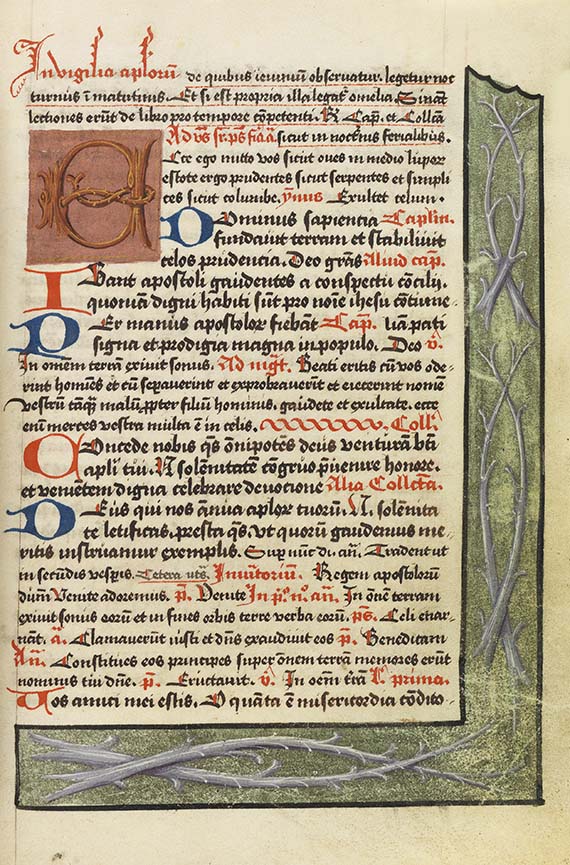 In vigilia aplorū de quibus ieiuniū observatur. legetur noc
turnus ī matutinis. Et si est propria illa legat̄ omelia. Sināt
lectiones erūt de libro pro tempore cōpetenti. R̄ Cap̄. et Collcā
Ad vs̄ sr̄. ps̄ fīā ā sicut in noctnis ferialibus.
Ecce ego mitto vos sicut oves in medio lupor
estote ergo prudentes sicut serpentes et simpli
ces sicut columbe. ymnus Exultet celum.
Dominus sapientia Caplm.
fundavit terram et stabilivit
celos prudencia. Deo grās Aliud cap̄.
Ibant apostoli gaudentes a conspectu cōcilij.
quoniā digni habiti sūt pro noīe ihesu cōtume
Per manus apostolor fiebāt Cap̄. liā pati
signa et prodigia magna in populo. Deo v̄.
In omēm terrā exivit sonus. Ad mgt̄. Beati eritis cū vos ode
rint homēs et cū sepaverint et exprobraverīt et eiecerint nomē
vestrū tāq̄ malū ꝓpter filiū hominis. gaudete et exultate. ecce
enī merces vestra multa ē in celis. Coll̄.
Concede nobis qs̄ om̄ipotēs deus venturā bt̄i
apli tui. N solēnitatē cōgruo p̄uenire honore.
et veniētem digna celebrare devotione Alia Collcta.
Deus qui nos ānua aplor tuorū. N. solēnita
te letificas. presta qs̄. vt quorū gaudemus me
ritis instruamur exemplis. Sup nūct̄ di. añ. Tradent ut
in secūdis vesp̄is. Cetera uts̄. Invitoriū. Regem apostolorū
dn̄m Venite adoremus. p̄. Venite In p̄º. nº. añ. In oñē terram
exivit sonus eorū et in fines orbis terre verba eorū. ps̄. Celi enar
rāt. a. Clamaverūt iusti et dn̄s exaudivit eos p̄. Benedicam
Añ. Constitues eos principes super oñem terrā memores erūt
nominis tui dn̄e. p̄. Eructavit. v̄. In oēm t̄rā L prima.
Vos amici mei estis. O quāta ē misericordia cōdito